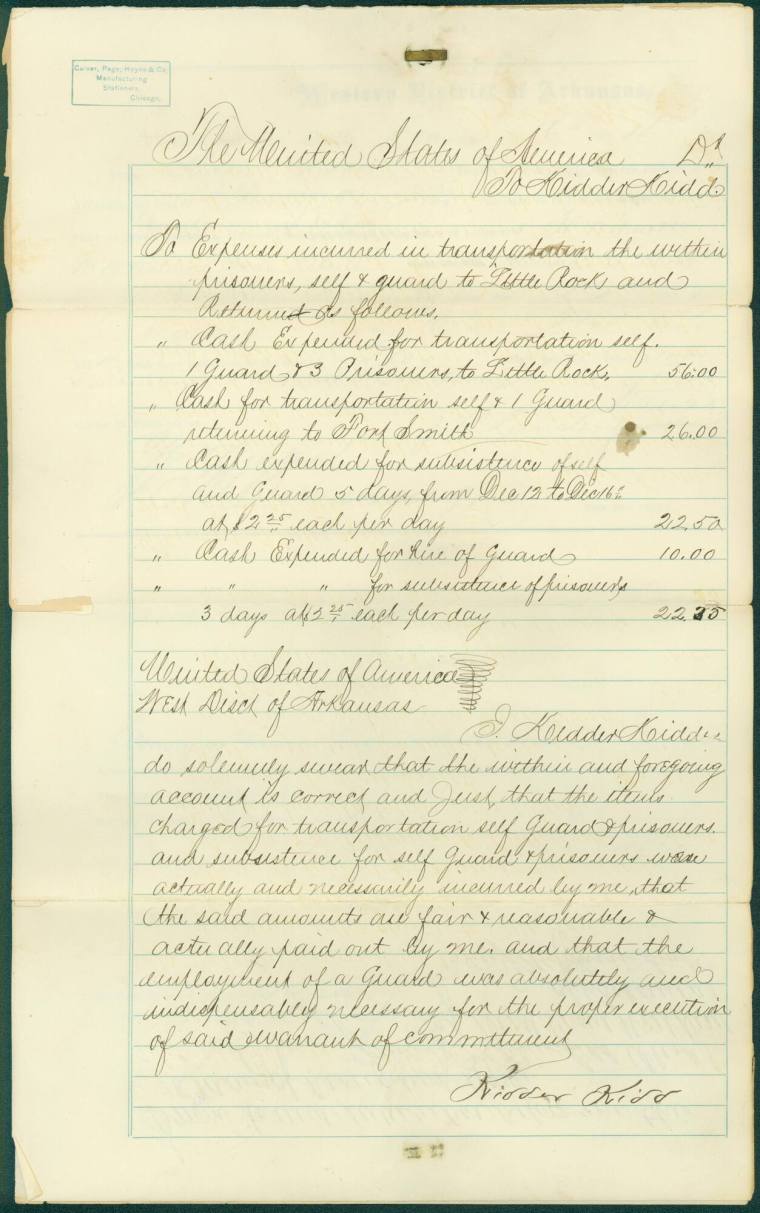 Culver, Page, Hoyne & Co.
Manufacturing
Stationers,
Chicago.
Western District of Arkansas
The United States of America Dr.
To Kidder Kidd.
To Expenses incurred in transportation the within
prisoners, self & guard to Little Rock and
Returned as follows.
" Cash Expended for transportation self.
1 Guard & 3 Prisoners, to Little Rock, 56.00
" Cash for transportation self & 1 Guard
returning to Fort Smith 26.00
" Cash expended for subsistence of self
and Guard 5 days, from Dec 12 to Dec 16th
at $2 25 each per day 22.50
" Cash Expended for hire of Guard 10.00
" " " for subsistence of prisoners
3 days at $2 25 each per day 22.25
United States of America
West Disct of Arkansas
I. Kidder Kidd
do solemnly swear that the within and foregoing
account is correct and Just, that the items
charged for transportation self Guard & prisoners.
and subsistence for self Guard & prisoners were
actually and necessarily incurred by me, that
the said amounts are fair & reasonable &
actually paid out by me. and that the
employment of a Guard was absolutely and
indispensably necessary for the proper execution
of said warrant of commitment
Kidder Kidd